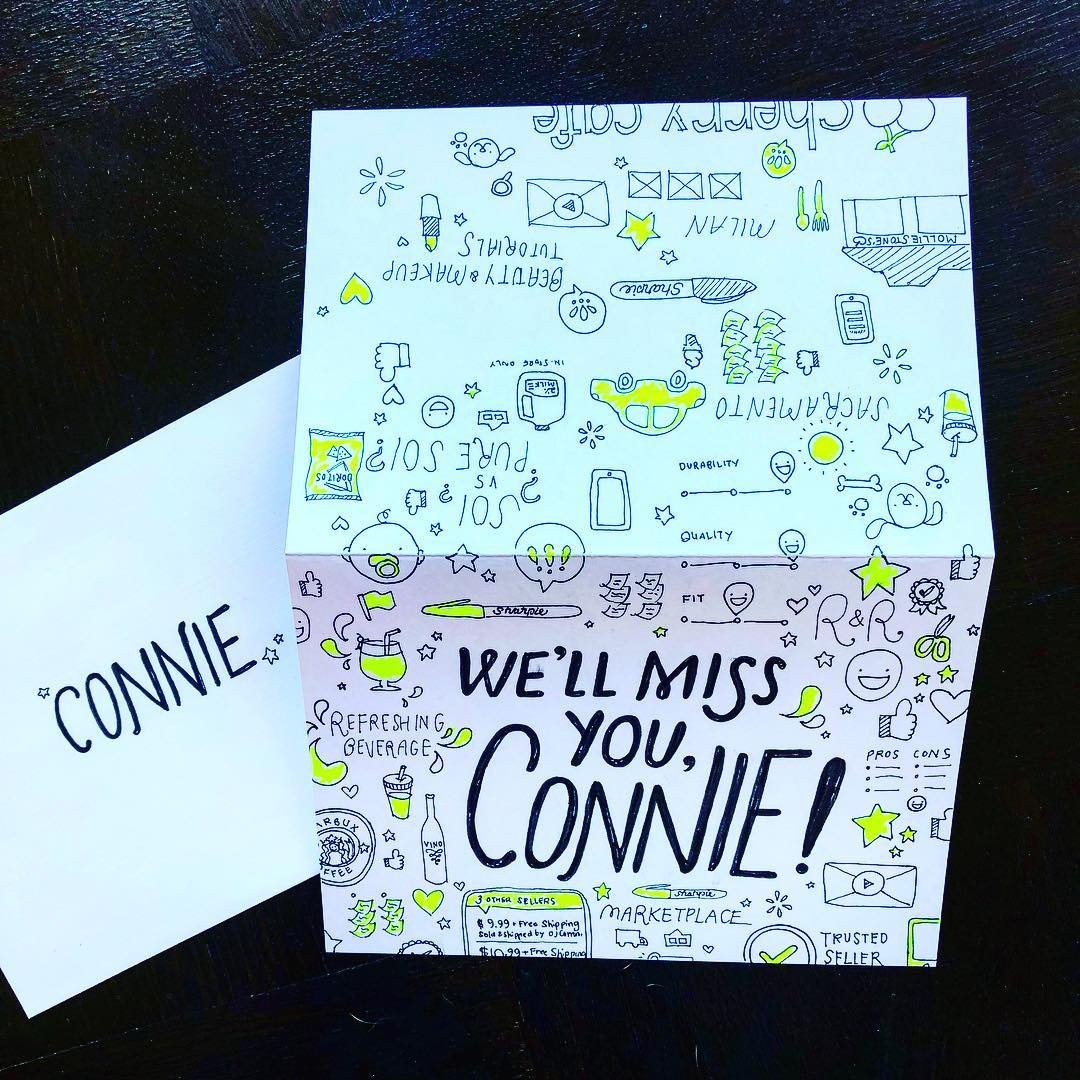 cherry cafe
MILAN
MOLLIE STONE'S
BEAUTY & MAKEUP
TUTORIALS
Sharpie
IN-STORE ONLY
2%
MILK
SACRAMENTO
SOI
VS
PURE SOI?
DORITOS
DURABILITY
QUALITY
FIT
sharpie
R&R
CONNIE
WE'LL MISS
YOU,
CONNIE!
REFRESHING
BEVERAGE
PROS CONS
ARBUX
FFEE
VINO
3 OTHER SELLERS
$9.99 + Free Shipping
Sold & shipped by
$10.99 + Free Shipping
sharpie
MARKETPLACE
TRUSTED
SELLER